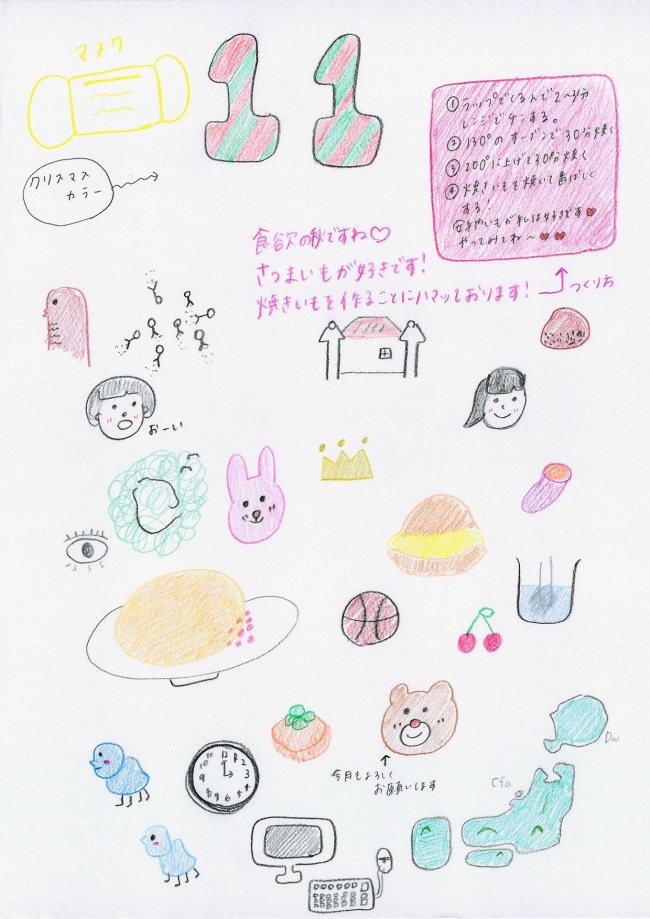 マスク
11
クリスマス
カラー
①ラップでくるんで2〜3分
レンジでチンする。
②130°のオーブンで30分焼く
③200°に上げて30分焼く
④焼きいもを焼いて香ばしく
する!
私は好きです
やってみてね〜
食欲の秋ですね♡
さつまいもが好きです!
焼きいもを作ることにハマッております!
つくり方
おーい
12
1
2
3
4
5
6
7
8
9
10
11
今月もよろしく
お願いします
Dw
Cfa